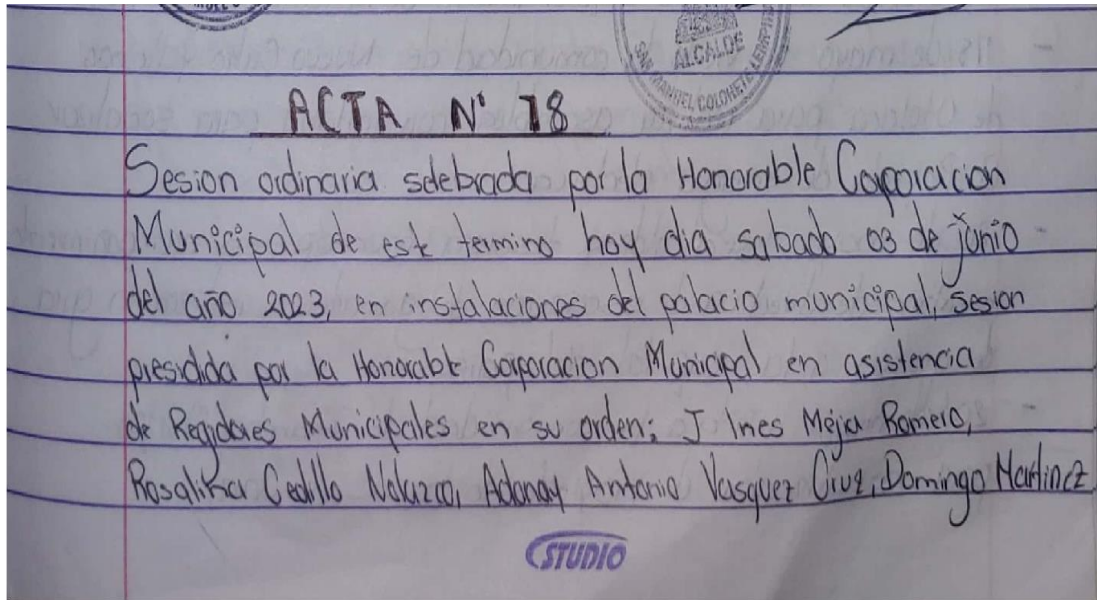 ALCALDE
SAN MANUEL COLOHETE LEMPIRA
ACTA N° 78
Sesion ordinaria selebrada por la Honorable Corporacion
Municipal de este termino hoy dia sabado 03 de junio
del año 2023, en instalaciones del palacio municipal, sesion
presidida por la Honorable Corporacion Municipal en asistencia
de Regidores Municipales en su orden; J Ines Mejia Romero,
Cedillo Adonay Antonio Vasquez Cruz, Domingo Martinez
STUDIO